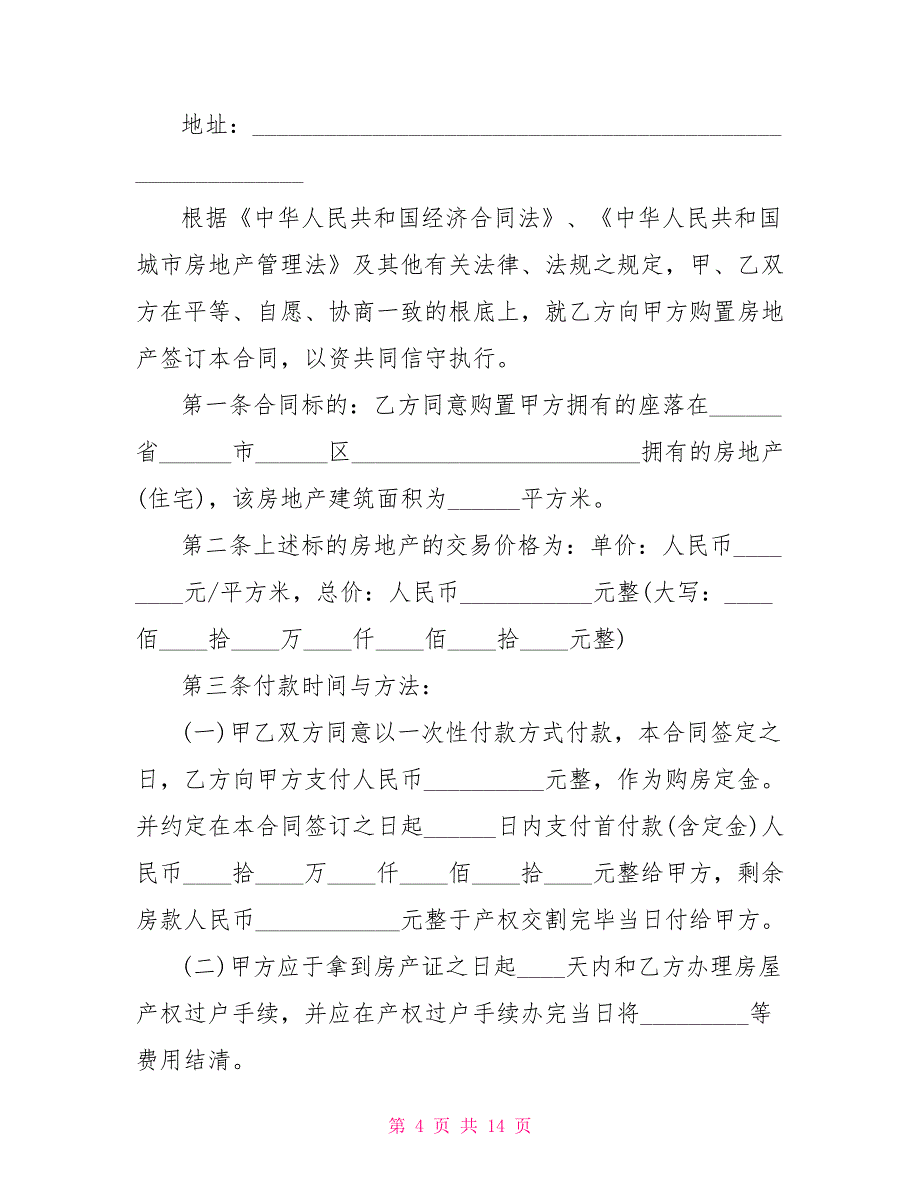 地址：____________________________________________
______________
根据《中华人民共和国经济合同法》、《中华人民共和国
城市房地产管理法》及其他有关法律、法规之规定，甲、乙双
方在平等、自愿、协商一致的根底上，就乙方向甲方购置房地
产签订本合同，以资共同信守执行。
第一条合同标的：乙方同意购置甲方拥有的座落在______
省______市______区________________________拥有的房地产
(住宅)，该房地产建筑面积为______平方米。
第二条上述标的房地产的交易价格为：单价：人民币____
____元/平方米，总价：人民币___________元整(大写：____
佰____拾____万____仟____佰____拾____元整)
第三条付款时间与方法：
(一)甲乙双方同意以一次性付款方式付款，本合同签定之
日，乙方向甲方支付人民币__________元整，作为购房定金。
并约定在本合同签订之日起______日内支付首付款(含定金)人
民币____拾____万____仟____佰____拾____元整给甲方，剩余
房款人民币____________元整于产权交割完毕当日付给甲方。
(二)甲方应于拿到房产证之日起____天内和乙方办理房屋
产权过户手续，并应在产权过户手续办完当日将_________等
费用结清。
第 4 页 共 14 页